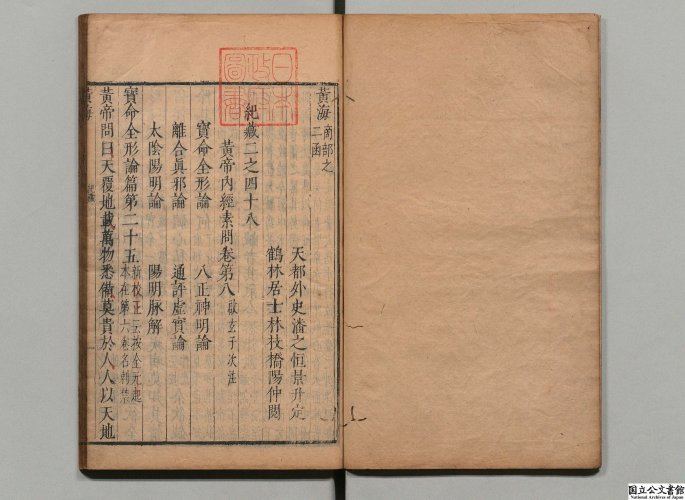 黃海 商部之二函
天都外史潘之恒景升定
鶴林居士林杖撟陽仲閱
紀藏二之四十八
黃帝內經素問卷第八 啟玄子次注
寶命全形論 八正神明論
離合眞邪論 通評虛實論
太陰陽明論 陽明脉解
寶命全形論篇第二十五 新校正云按全元起本在第六卷名刺禁
黃帝問曰天覆地載萬物悉備莫貴於人人以天地
黃海
日本政府圖書
国立公文書館
National Archives of Japan